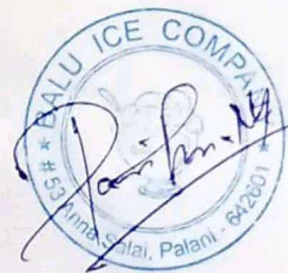 ★ BALU ICE COMPANY ★
# 53 Anna Salai, Palani - 642601